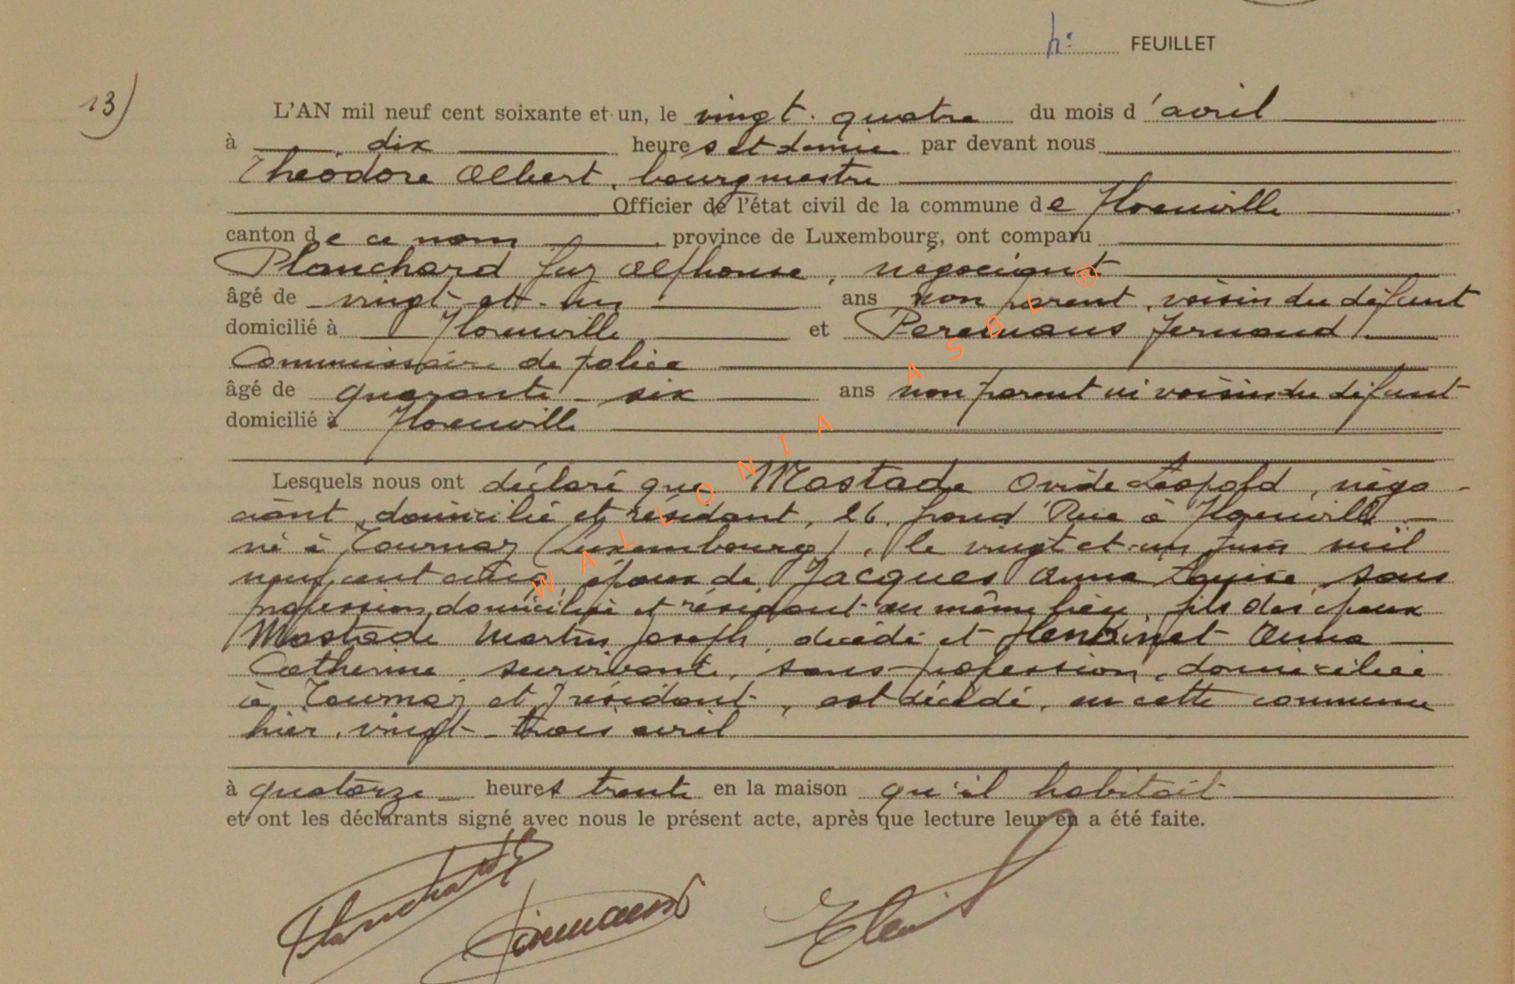 FEUILLET
13)
L'AN mil neuf cent soixante et un, le vingt-quatre du mois d'avril
à dix heures et demie par devant nous
Théodore Albert, bourgmestre
Officier de l'état civil de la commune de Florenville
canton de ce nom province de Luxembourg, ont comparu
Planchard Guy Alphonse, négociant
âgé de vingt et un ans non parent, voisin du défunt
domicilié à Florenville et Peremans Fernand
Commissaire de police
âgé de quarante-six ans non parent ni voisin du défunt
domicilié à Florenville
Lesquels nous ont déclaré que Mostade Ovide Léopold, négo-
ciant, domicilié et résidant, 26, grand'Rue à Florenville
né à Tournay (Luxembourg), le vingt et un juin mil
neuf cent cinq, époux de Jacques Anna Louise, sans
profession, domiciliée et résidant au même lieu, fils des époux
Mostade Martin Joseph, décédé et Henrinet Anna
Catherine, survivante, sans profession, domiciliée
à Tournay et y résidant, est décédé, en cette commune
hier, vingt-trois avril
à quatorze heures trente en la maison qu'il habitait
et ont les déclarants signé avec nous le présent acte, après que lecture leur en a été faite.
Planchard
Peremans
WALLONIA ASBL ®